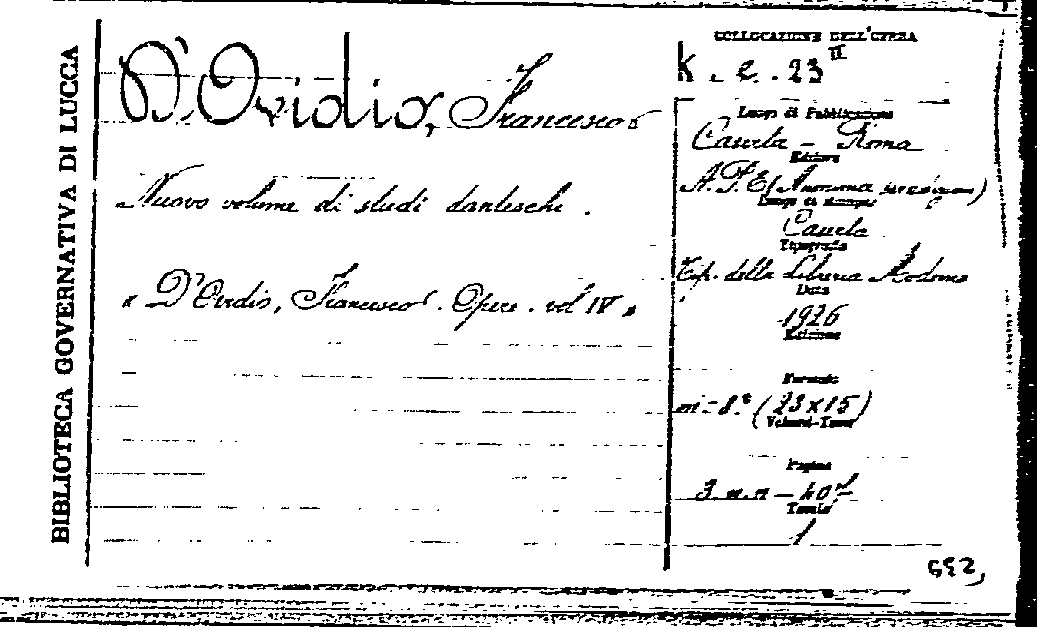 BIBLIOTECA GOVERNATIVA DI LUCCA
D'Ovidio, Francesco
Nuovo volume di studi danteschi.
« D'Ovidio, Francesco. Opere. vol IV »
COLLOCAZIONE DELL'OPERA
K. e. 23 II
Luogo di Pubblicazione
Caserta - Roma
Editore
A.P.E (Anonima
Luogo di stampa
Caserta
Tipografia
Tip. della Libreria Moderna
Data
1926
Edizione
Formato
in-8.° (23x15)
Volumi-Tomi
Pagine
3 n.n -
Tavole
1